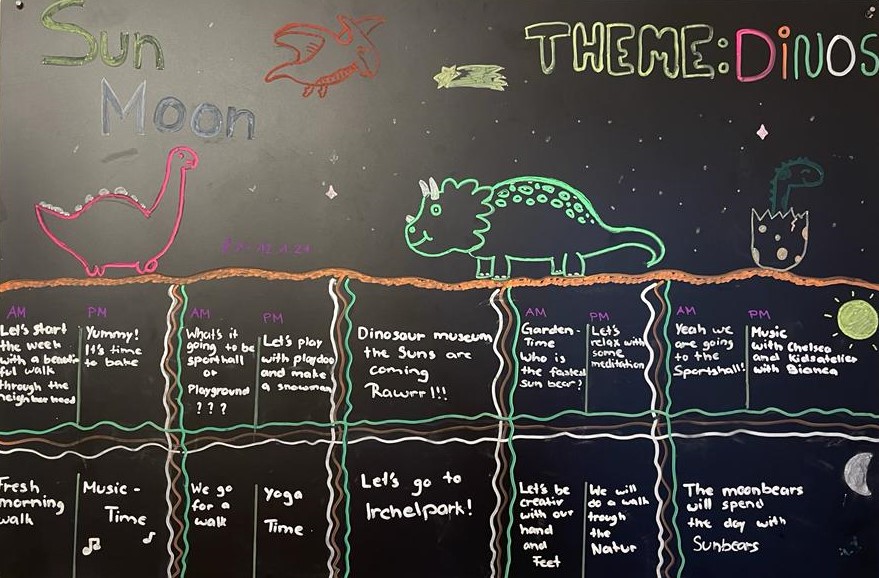 Sun
Moon
THEME: DiNOS
AM
Let's start
the week
with a beauti
ful walk
through the
neighborhood
PM
Yummy!
It's time
to bake
AM
What's it
going to be
sporthall
or
Playground
? ? ?
PM
Let's play
with playdoo
and make
a snowman
Dinosaur museum
the Suns are
coming
Rawrr!!!
AM
Garden-
Time
Who is
the fasted
sun bear?
PM
Let's
relax with
some
meditation
AM
Yeah we
are going
to the
Sportshall!
PM
Music
with Chelsea
and Kidsatelier
with Bianca
Fresh
morning
walk
Music -
Time
We go
for a
walk
Yoga
Time
Let's go to
Irchelpark!
Let's be
creativ
with our
hand
and
Feet
We will
do a walk
trough
the
Natur
The moonbears
will spend
the day with
Sunbears